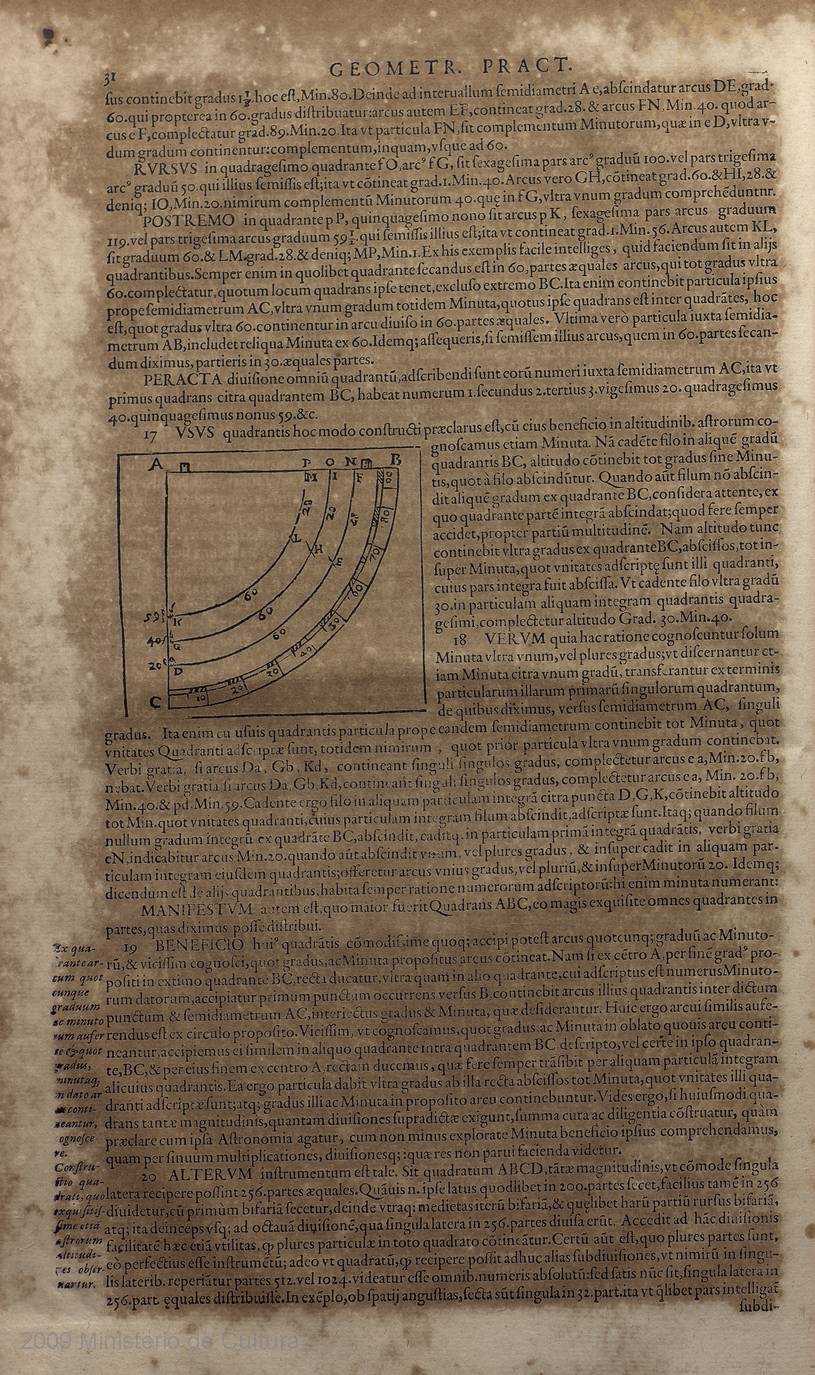 31
GEOMETR. PRACT.
ſus continebit gradus 1⅓.hoc eſt, Min.80.Deinde ad interuallum ſemidiametri A e,abſcindatur arcus DE,grad-
60.qui propterea in 60.gradus diſtribuatur:arcus autem EF,contineat grad.28. & arcus FN, Min.40. quod ar-
cus e F,complectatur grad.89.Min.20.Ita vt particula FN,ſit complementum Minutorum,quæ in e D,vltra v-
dum gradum continentur:complementum,inquam,vſque ad 60.
RVRSVS in quadrageſimo quadrante f O,arcꝰ f G, ſit ſexageſima pars arcꝰ graduū 100.vel pars trigeſima
arcꝰ graduū 50.qui illius ſemiſſis eſt;ita vt cōtineat grad.1.Min.40.Arcus vero GH,cōtineat grad.60.&HI,28.&
deniq; IO,Min.20.nimirum complementū Minutorum 40.quę in fG,vltra vnum gradum comprehēduntur.
POSTREMO in quadrante p P, quinquageſimo nono ſit arcus p K, ſexageſima pars arcus graduum
119.vel pars trigeſima arcus graduum 59½.qui ſemiſſis illius eſt;ita vt contineat grad.1.Min.56.Arcus autem KL,
ſit graduum 60.& LM.grad.28.& deniq; MP,Min.1.Ex his exemplis facile intelliges, quid faciendum ſit in alijs
quadrantibus.Semper enim in quolibet quadrante ſecandus eſt in 60.partes æquales arcus,qui tot gradus vltra
60.complectatur,quotum locum quadrans ipſe tenet,excluſo extremo BC.Ita enim continebit particula ipſius
prope ſemidiametrum AC,vltra vnum gradum totidem Minuta,quotus ipſe quadrans eſt inter quadrātes, hoc
eſt,quot gradus vltra 60.continentur in arcu diuiſo in 60.partes æquales. Vltima verò particula iuxta ſemidia-
metrum AB,includet reliqua Minuta ex 60.Idemq; aſſequeris,ſi ſemiſſem illius arcus,quem in 60.partes ſecan-
dum diximus, partieris in 30.æquales partes.
PERACTA diuiſione omniū quadrantū,adſcribendi ſunt eorū numeri iuxta ſemidiametrum AC,ita vt
primus quadrans citra quadrantem BC, habeat numerum 1.ſecundus 2.tertius 3.vigeſimus 20. quadrageſimus
40.quinquageſimus nonus 59.&c.
17 VSVS quadrantis hoc modo conſtructi præclarus eſt,cū eius beneficio in altitudinib. aſtrorum co-
gnoſcamus etiam Minuta. Nā cadēte filo in aliquē gradū
quadrantis BC, altitudo cōtinebit tot gradus ſine Minu-
tis,quot à filo abſcindūtur. Quando aūt filum nō abſcin-
dit aliquē gradum ex quadrante BC,conſidera attente,ex
quo quadrante partē integrā abſcindat;quod fere ſemper
accidet,propter partiū multitudinē. Nam altitudo tunc
continebit vltra gradus ex quadrante BC,abſciſſos,tot in-
ſuper Minuta,quot vnitates adſcriptę ſunt illi quadranti,
cuius pars integra fuit abſciſſa. Vt cadente filo vltra gradū
30.in particulam aliquam integram quadrantis quadra-
geſimi,complectetur altitudo Grad. 30.Min.40.
18 VERVM quia hac ratione cognoſcuntur ſolum
Minuta vltra vnum,vel plures gradus;vt diſcernantur et-
iam Minuta citra vnum gradū, transferantur ex terminis
particularum illarum primarū ſingulorum quadrantum,
de quibus diximus, verſus ſemidiametrum AC, ſinguli
A P O N B
M I F
L H E
K G D
C
59 40 20
60 60 60
10 20 30 40 50 60 70 80
gradus. Ita enim cuiuſuis quadrantis particula prope eandem ſemidiametrum continebit tot Minuta, quot
vnitates Quadranti adſcriptæ ſunt, totidem nimirum, quot prior particula vltra vnum gradum continebat.
Verbi gratia, ſi arcus Da, Gb, Kd, contineant ſinguli ſingulos gradus, complectetur arcus e a,Min.20.fb,
nebat.Verbi gratia ſi arcus Da,Gb,Kd,contineant ſinguli ſingulos gradus, complectetur arcus e a, Min. 20.fb,
Min.40.& pd.Min.59.Cadente ergo filo in aliquam particulam integrā citra puncta D,G,K,cōtinebit altitudo
tot Min.quot vnitates quadranti,cuius particulam integram filum abſcindit,adſcriptæ ſunt.Itaq; quando filum
nullum gradum integrū ex quadrāte BC,abſcindit, caditq. in particulam primā integrā quadrātis, verbi gratia
eN,indicabitur arcus Min.20.quando aūt abſcindit vnum, vel plures gradus, & inſuper cadit in aliquam par-
ticulam integram eiuſdem quadrantis;offeretur arcus vnius gradus,vel pluriū,& inſuper Minutorū 20. Idemq;
dicendum eſt de alijs quadrantibus,habita ſemper ratione numerorum adſcriptorū:hi enim minuta numerant:
MANIFESTVM autem eſt,quo maior fuerit Quadrans ABC,eo magis exquiſite omnes quadrantes in
partes,quas diximus poſſe diſtribui.
19 BENEFICIO huiꝰ quadrātis cōmodiſsime quoq; accipi poteſt arcus quotcunq; graduū ac Minuto-
rū,& viciſſim cognoſci,quot gradus,ac Minuta propoſitus arcus cōtineat.Nam ſi ex cētro A,per finē gradꝰ pro-
poſiti in extimo quadrante BC,recta ducatur,vltra quam in alio quadrante,cui adſcriptus eſt numerus Minuto-
rum datorum,accipiatur primum punctum occurrens verſus B,continebit arcus illius quadrantis inter dictum
punctum & ſemidiametrum AC,interiectus gradus & Minuta, quæ deſiderantur. Huic ergo arcui ſimilis aufe-
rendus eſt ex circulo propoſito.Viciſſim, vt cognoſcamus,quot gradus ac Minuta in oblato quouis arcu conti-
neantur,accipiemus ei ſimilem in aliquo quadrante intra quadrantem BC deſcripto,vel certe in ipſo quadran-
te,BC,& per eius finem ex centro A,rectam ducemus, quæ fere ſemper trāſibit per aliquam particulā integram
alicuius quadrantis.Ea ergo particula dabit vltra gradus ab illa recta abſciſſos tot Minuta,quot vnitates illi qua-
dranti adſcriptæ ſunt;atq; gradus illi ac Minuta in propoſito arcu continebuntur.Vides ergo,ſi huiuſmodi qua-
drans tantæ magnitudinis,quantam diuiſiones ſupradictæ exigunt,ſumma cura ac diligentia cōſtruatur, quàm
præclare cum ipſa Aſtronomia agatur, cum non minus explorate Minuta beneficio ipſius comprehendamus,
quam per ſinuum multiplicationes, diuiſionesq;:quæ res non parui facienda videtur.
Ex qua-
rante ar-
cum quot
cunque
graduum
ac minuto
rum aufer
re & quot
gradus,
minutaq;
in dato ar
cu conti-
neantur,
cognoſce
re.
Conſtru-
ctio qua-
drati, quo
exquiſitiſ-
ſime etiā
aſtrorum
altitudi-
nes obſer-
uantur.
20 ALTERVM inſtrumentum eſt tale. Sit quadratum ABCD,tātæ magnitudinis,vt cōmode ſingula
latera recipere poſſint 256.partes æquales.Quāuis n. ipſe latus quodlibet in 200.partes ſecet,facilius tamē in 256
diuidetur,cū primùm bifariā ſecetur,deinde vtraq; medietas iterū bifariā,& quęlibet harū partiū rurſus bifariā,
atq; ita deinceps vſq; ad octauā diuiſionē,qua ſingula latera in 256.partes diuiſa erūt. Accedit ad hāc diuiſionis
facilitatē hæc etiā vtilitas, ꝙ plures particulæ in toto quadrato cōtineātur.Certū aūt eſt,quo plures partes ſunt,
eò perfectius eſſe inſtrumētū; adeo vt quadratū,ꝙ recipere poſſit adhuc alias ſubdiuiſiones,vt nimirū in ſingu-
lis laterib. reperiātur partes 512.vel 1024.videatur eſſe omnib.numeris abſolutū:ſed ſatis nūc ſit,ſingula latera in
256.part. ęquales diſtribuiſſe.In exēplo,ob ſpatij anguſtias,ſecta sūt ſingula in 32.part.ita vt q̄libet pars intelligat̄
ſubdi-
2009 Ministerio de Cultura